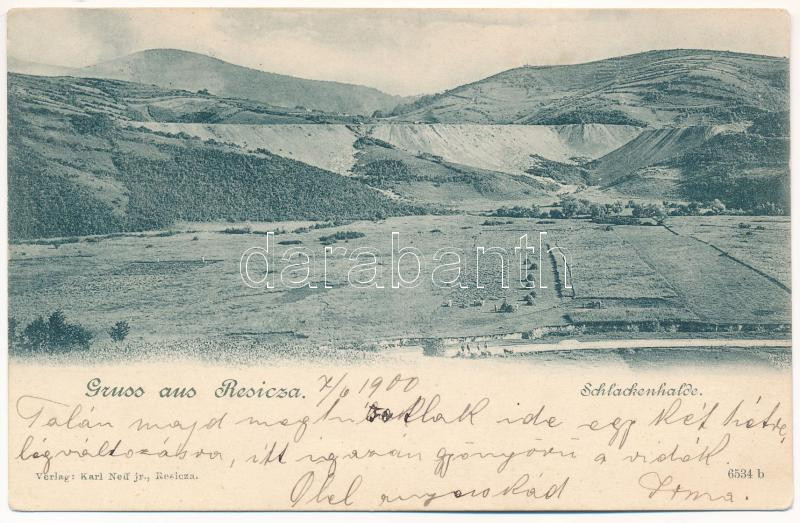 darabanth
Gruss aus Resicza. 7/6 1900
Schlackenhalde.
Talán majd ide egy két hétre,
légváltozásra, itt igazán gyönyörű a vidék.
Verlag: Karl Neff jr., Resicza.
6534 b
Ölel Irma.